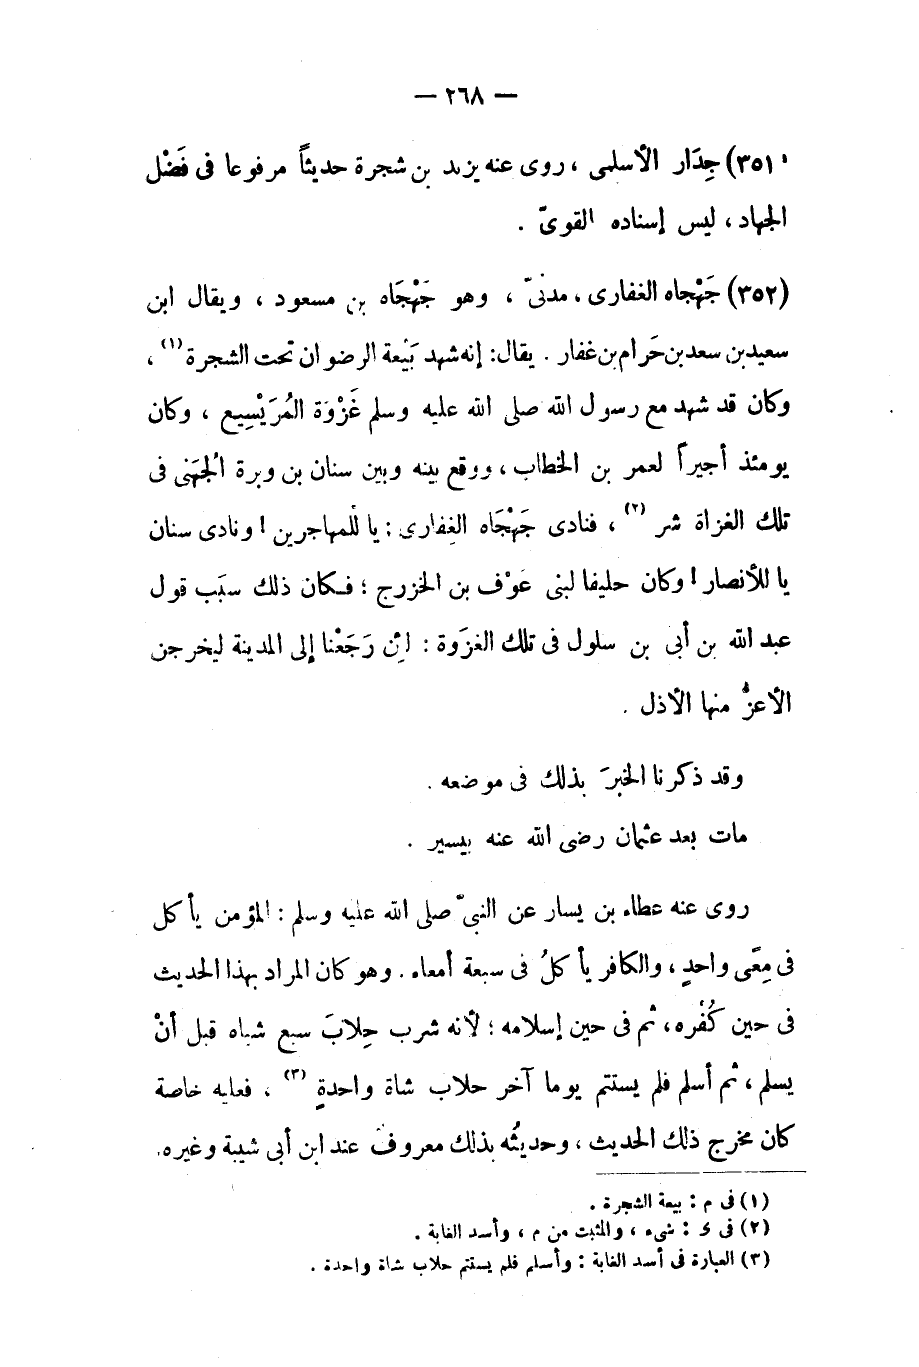 — ٢٦٨ —
(٣٥١) جِدَار الأسلمى ، روى عنه يزيد بن شجرة حديثاً مرفوعا فى فَضْل
الجهاد ، ليس إسناده القوىّ .
(٣٥٢) جَهْجاه الغفارى ، مدنىّ ، وهو جَهْجَاه بن مسعود ، ويقال ابن
سعيد بن سعد بن حَرام بن غفار . يقال : إنه شهد بَيْعة الرضوان تحت الشجرة (١) ،
وكان قد شهد مع رسول الله صلى الله عليه وسلم غَزْوَة المُرَيْسِيع ، وكان
يومئذ أجيراً لعمر بن الخطاب ، ووقع بينه وبين سنان بن وبرة الُجهَنى فى
تلك الغزاة شر (٢) ، فنادى جَهْجَاه الغِفارى : يا للْمهاجرين ! ونادى سنان
يا للأنصار ! وكان حليفا لبنى عَوْف بن الخزرج ؛ فكان ذلك سبَب قول
عبد الله بن أبى بن سلول فى تلك الغزَوة : لئن رَجَعْنا إلى المدينة ليخرجن
الأعزُّ منها الأذل .
وقد ذكرنا الخبرَ بذلك فى موضعه .
مات بعد عثمان رضى الله عنه بيسير .
روى عنه عطاء بن يسار عن النبىّ صلى الله عليه وسلم : المؤمن يأكل
فى مِعًى واحدٍ ، والكافر يأكلُ فى سبعة أمعاء . وهو كان المراد بهذا الحديث
فى حين كُفْره ، ثم فى حين إسلامه ؛ لأنه شرب حِلابَ سبع شياه قبل أنْ
يسلم ، ثم أسلم فلم يستتم يوما آخر حلاب شاة واحدةٍ (٣) ، فعليه خاصة
كان مخرج ذلك الحديث ، وحديثُه بذلك معروف عند ابن أبى شيبة وغيره .
(١) فى م : بيعة الشجرة .
(٢) فى ى : شىء ، والمثبت من م ، وأسد الغابة .
(٣) العبارة فى أسد الغابة : وأسلم فلم يستتم حلاب شاة واحدة .